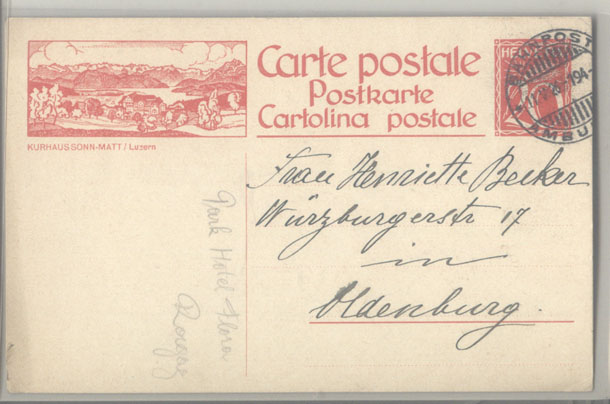 Carte postale
Postkarte
Cartolina postale
KURHAUS SONN-MATT / Luzern
HEL
BAHNPOST
AMBU
Frau Henriette Becker
Würzburgerstr 17
in
Oldenburg.
Park Hotel Flora